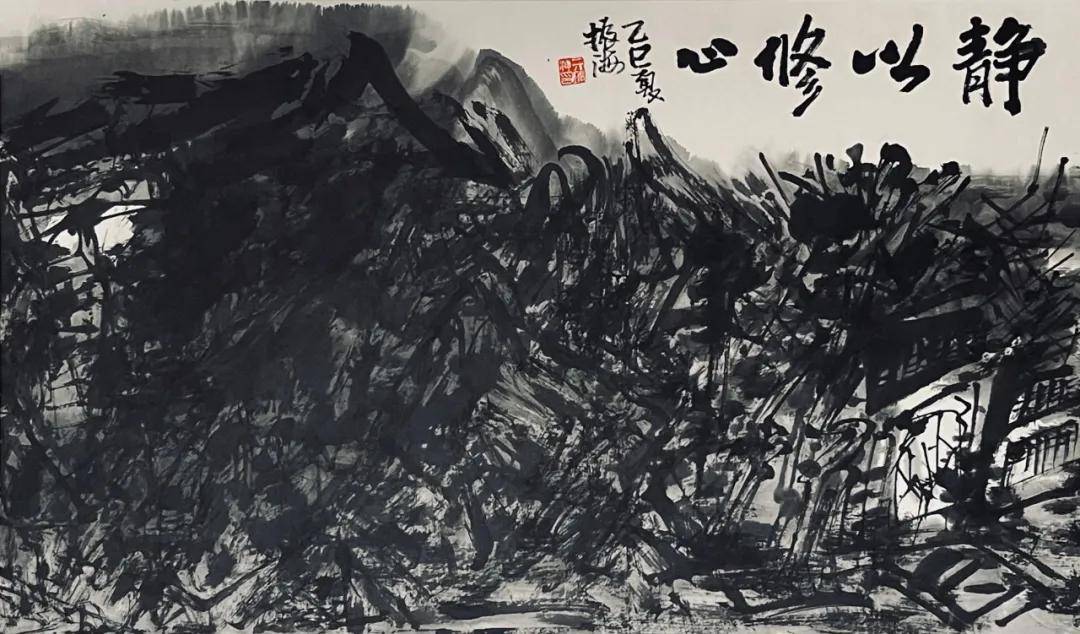 静以修心
乙巳夏
振海